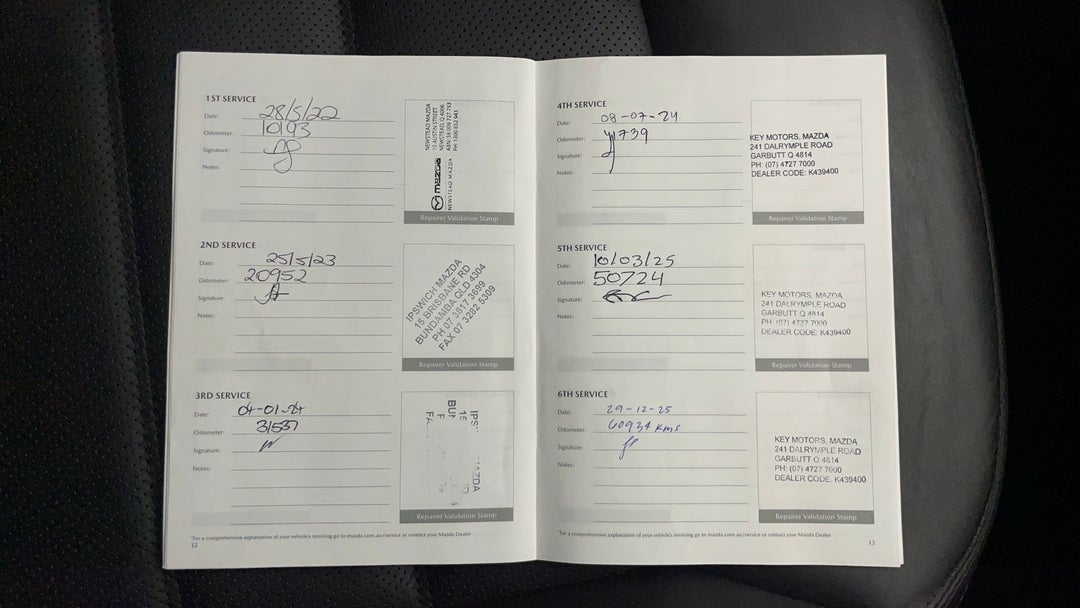 1ST SERVICE
Date: 28/5/22
Odometer: 10193
Signature:
Notes:
NEWSTEAD MAZDA
10 AUSTIN STREET
NEWSTEAD, Q 4006
PH: 1300 852 941
mazda
NEWSTEAD MAZDA
Repairer Validation Stamp
2ND SERVICE
Date: 25/5/23
Odometer: 20952
Signature:
Notes:
IPSWICH MAZDA
15 BRISBANE RD
BUNDAMBA QLD 4304
PH 07 3817 3699
FAX 07 3282 5309
Repairer Validation Stamp
3RD SERVICE
Date: 04-01-24
Odometer: 31537
Signature:
Notes:
Repairer Validation Stamp
*For a comprehensive explanation of your vehicle's servicing go to mazda.com.au/service or contact your Mazda Dealer
12
4TH SERVICE
Date: 08-07-24
Odometer: 41739
Signature:
Notes:
KEY MOTORS, MAZDA
241 DALRYMPLE ROAD
GARBUTT Q 4814
PH: (07) 4727 7000
DEALER CODE: K439400
Repairer Validation Stamp
5TH SERVICE
Date: 10/03/25
Odometer: 50724
Signature:
Notes:
KEY MOTORS, MAZDA
241 DALRYMPLE ROAD
GARBUTT Q 4814
PH: (07) 4727 7000
DEALER CODE: K439400
Repairer Validation Stamp
6TH SERVICE
Date: 29-12-25
Odometer: 60934 kms
Signature:
Notes:
KEY MOTORS, MAZDA
241 DALRYMPLE ROAD
GARBUTT Q 4814
PH: (07) 4727 7000
DEALER CODE: K439400
Repairer Validation Stamp
*For a comprehensive explanation of your vehicle's servicing go to mazda.com.au/service or contact your Mazda Dealer
13